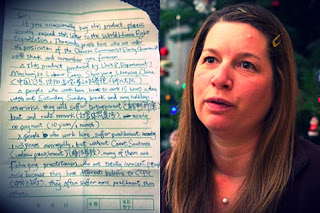 Sir:
If you occasionally buy this product, please
kindly resend this letter to the World Human Right
Organization. Thousands people here who are under
the persecution of the Chinese Communist Party Government
will thank and remember you forever.
This product produced by Unit 8, Department 2,
Labour Camp, Shenyang, Liaoning, China
People who work here, have to work 15 hours a day
with out Saturday, Sunday break and any holidays,
otherwise, they will suffer
beat and rude remark nearly
no payment (10 yuan/1 month)
People who work here, suffer punishment nearly
years averagely, but without Court Sentence
many of them are
Falun gong practitioner, who are totally innocent people
only because they have different believe to
they often suffer more punishment than
others.